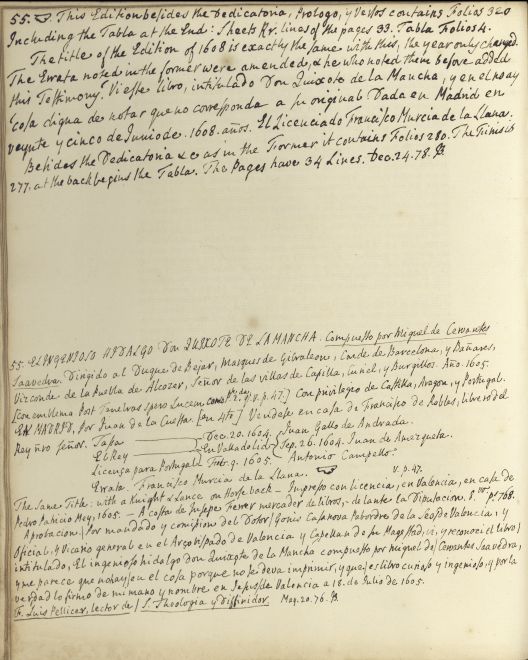 55. This Edition besides the Dedicatoria, Prologo, y Versos contains Folios 320
Including the Tabla at the End: Sheets Rr. lines of the pages 33. Tabla Folios 4.
The title of the Edition of 1608 is exactly the same with this, the year only changed.
The Errata noted in the former were amended, & he who noted them before added
this Testimony. Vi este libro, intitulado Don Quixote de la Mancha, y en el no ay
cosa digna de notar que no corresponda a su original Dada en Madrid en
veynte y cinco de Junio de 1608. años. El Licenciado Francisco Murcia de la Llana.
Besides the Dedicatoria &c as in the Former it contains Folios 280. The Finis is
277, at the back begins the Tabla. The Pages have 34 Lines. Dec. 24. 78. B.
55. EL INGENIOSO HIDALGO DON QUIXOTE DE LA MANCHA. Compuesto por Miguel de Cervantes
Saavedra. Dirigido al Duque de Bejar, Marques de Gibraleon, Conde de Barcelona, y Bañares,
Vizconde de la Puebla de Alcozer, Señor de las villas de Capilla, Curiel, y Burgillos. Año. 1605.
[con emblema Post Tenebras Spero Lucem v. p. 47.] Con privilegio de Castilla, Aragon, y Portugal.
EN MADRID, Por Juan de la Cuesta. [en 4to.] Vendese en casa de Francisco de Robles, librero del
Rey nro señor. Tassa Dec. 20. 1604. Juan Gallo de Andrada.
El Rey En Valladolid Sep. 26. 1604. Juan de Amezqueta.
Licença para Portugal Febr. 9. 1605. Antonio Campello.
Errata. Francisco Murcia de la Llana. v. p. 47.
The Same Title: with a Knight & Lance on Horseback - Impresso con licencia, en Valencia, en casa de
Pedro Patricio Mey, 1605. - A costa de Jusepe Ferrer mercader de libros, delante la Diputacion. 8. vo. p. 768.
Aprobacion. Por mandado y comision del Dotor Gonis Casanova Pabordre de la Seo de Valencia, y
Oficial, y Vicario general en el Arçobispado de Valencia y Capellan de su Magestad, vi, y reconoci el libro
intitulado, El ingenioso hidalgo don Quixote de la Mancha compuesto por miguel de Cervantes Saavedra,
y me parece que no hay en el cosa porque no se deva imprimir, y que es libro curioso y ingenioso, y por la
verdad lo firmo de mi mano y nombre en Jesus de Valencia a 18. de Julio de 1605.
Fr. Luis Pellicer, lector de S. Theologia y Difinidor. May. 20. 76. B.